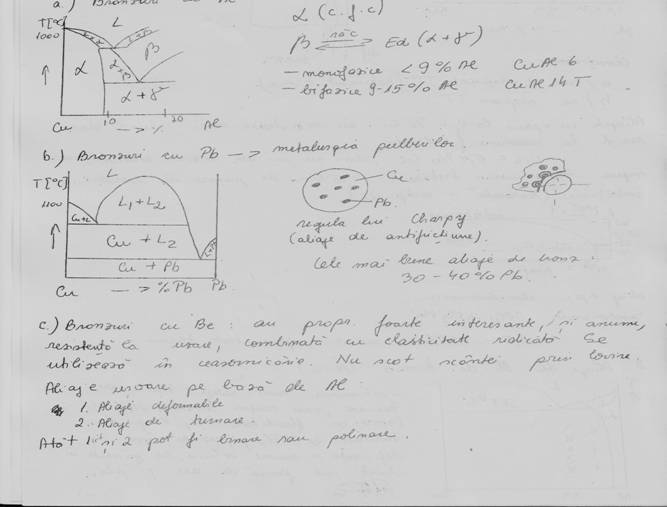 a.) Bronzuri cu Al
T[°C] L
1000
α (c.f.c)
β Ed (α+γ)
β
α
α+γ
Cu 10 → % 20 Al
— monofazice <9% Al CuAl 6
— bifazice 9-15% Al CuAl 14 T
b.) Bronzuri cu Pb → metalurgia pulberilor
T[°C] L
1100
L1+L2
Cu+L
Cu + L2
Cu + Pb
Cu → %Pb Pb
Cu
Pb
regula lui Charpy
(aliaje de antifricțiune).
Cele mai bune aliaje
30-40% Pb.
c.) Bronzuri cu Be: au propr. foarte interesante, și anume,
rezistență la uzare, combinată cu elasticitate ridicată Se
utilizează în ceasornicărie. Nu scot scântei prin lovire.
Aliaje ușoare pe bază de Al
1. Aliaje deformabile
2. Aliaje de turnare.
Atât 1 și 2 pot fi binare sau polinare.